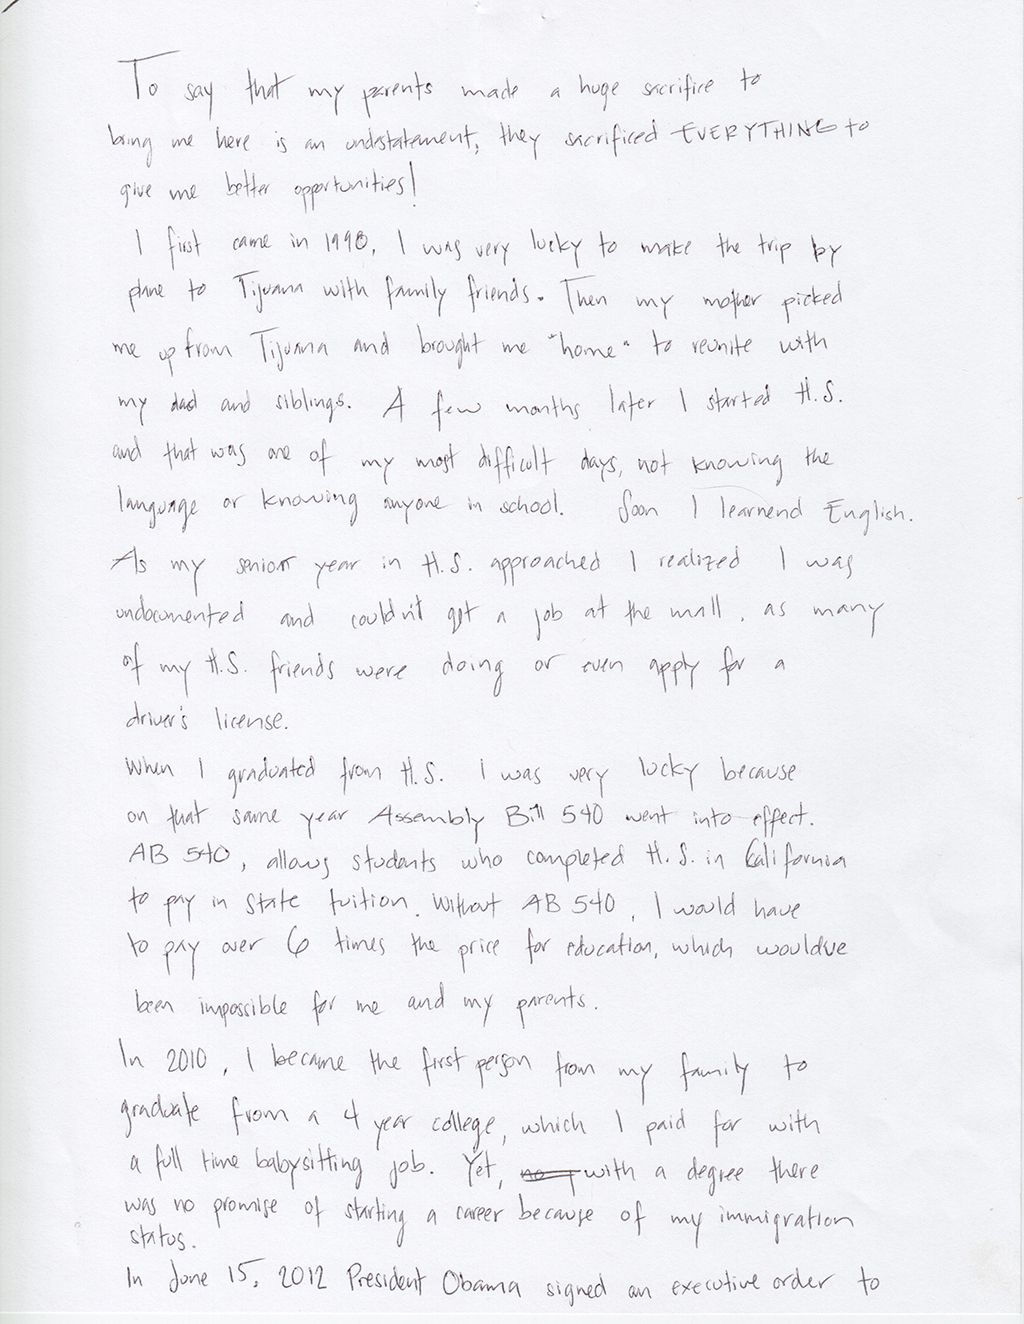 To say that my parents made a huge sacrifice to
bring me here is an undestatement, they sacrificed EVERYTHING to
give me better opportunities!
I first came in 1998, I was very lucky to make the trip by
plane to Tijuana with family friends. Then my mother picked
me up from Tijuana and brought me "home" to reunite with
my dad and siblings. A few months later I started H.S.
and that was one of my most difficult days, not knowing the
language or knowing anyone in school. Soon I learnend English.
As my senior year in H.S. approached I realized I was
undocumented and couldn't get a job at the mall, as many
of my H.S. friends were doing or even apply for a
driver's license.
When I graduated from H.S. I was very lucky because
on that same year Assembly Bill 540 went into effect.
AB 540, allows students who completed H.S. in California
to pay in state tuition. Without AB 540, I would have
to pay over 6 times the price for education, which would've
been impossible for me and my parents.
In 2010, I became the first person from my family to
graduate from a 4 year college, which I paid for with
a full time babysitting job. Yet, with a degree there
was no promise of starting a career because of my immigration
status.
In June 15, 2012 President Obama signed an executive order to